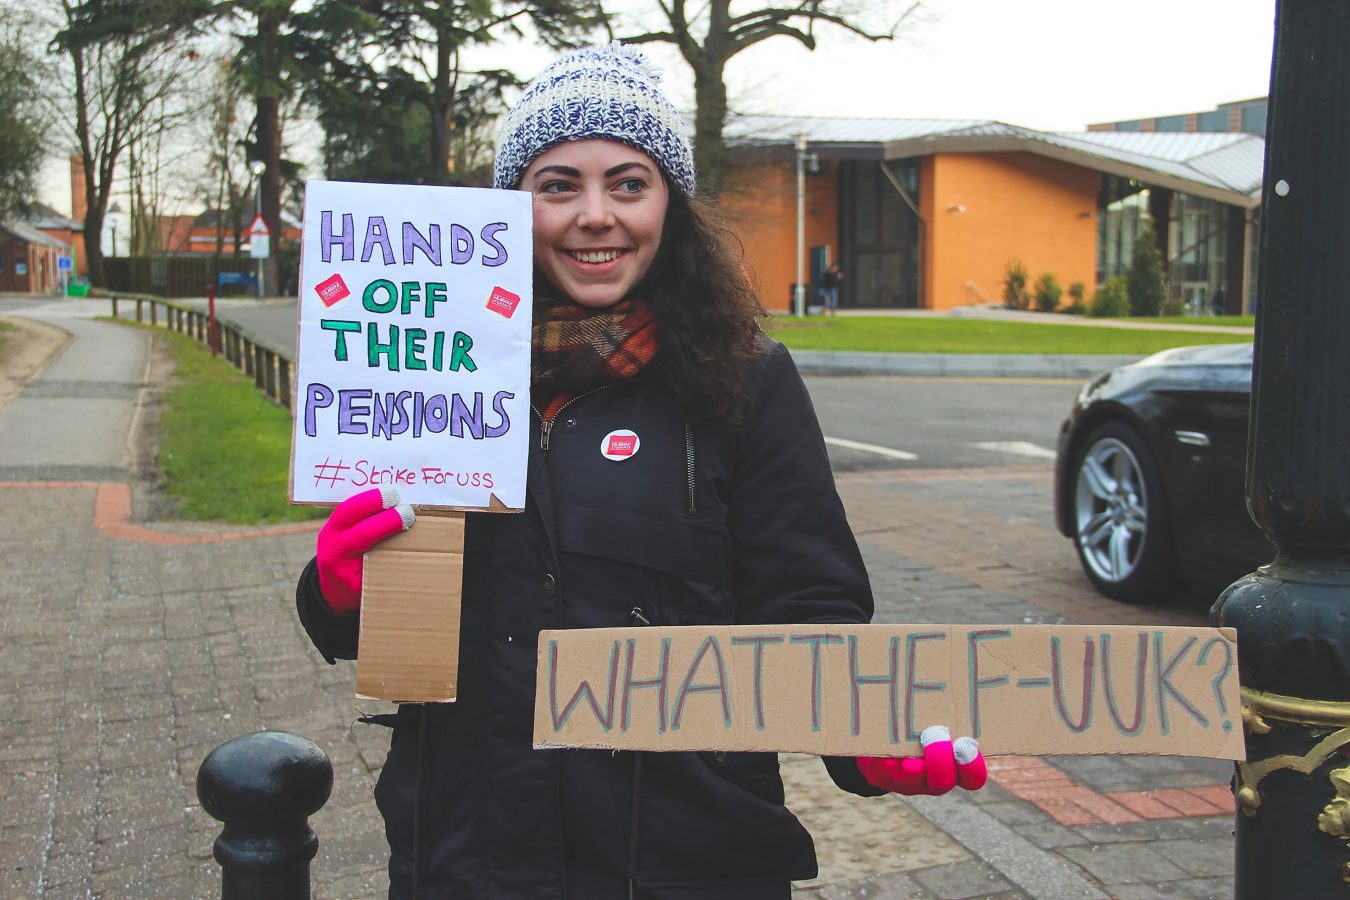 HANDS
OFF
THEIR
PENSIONS
#StrikeForUSS
Labour
WHATTHEF-UUK?